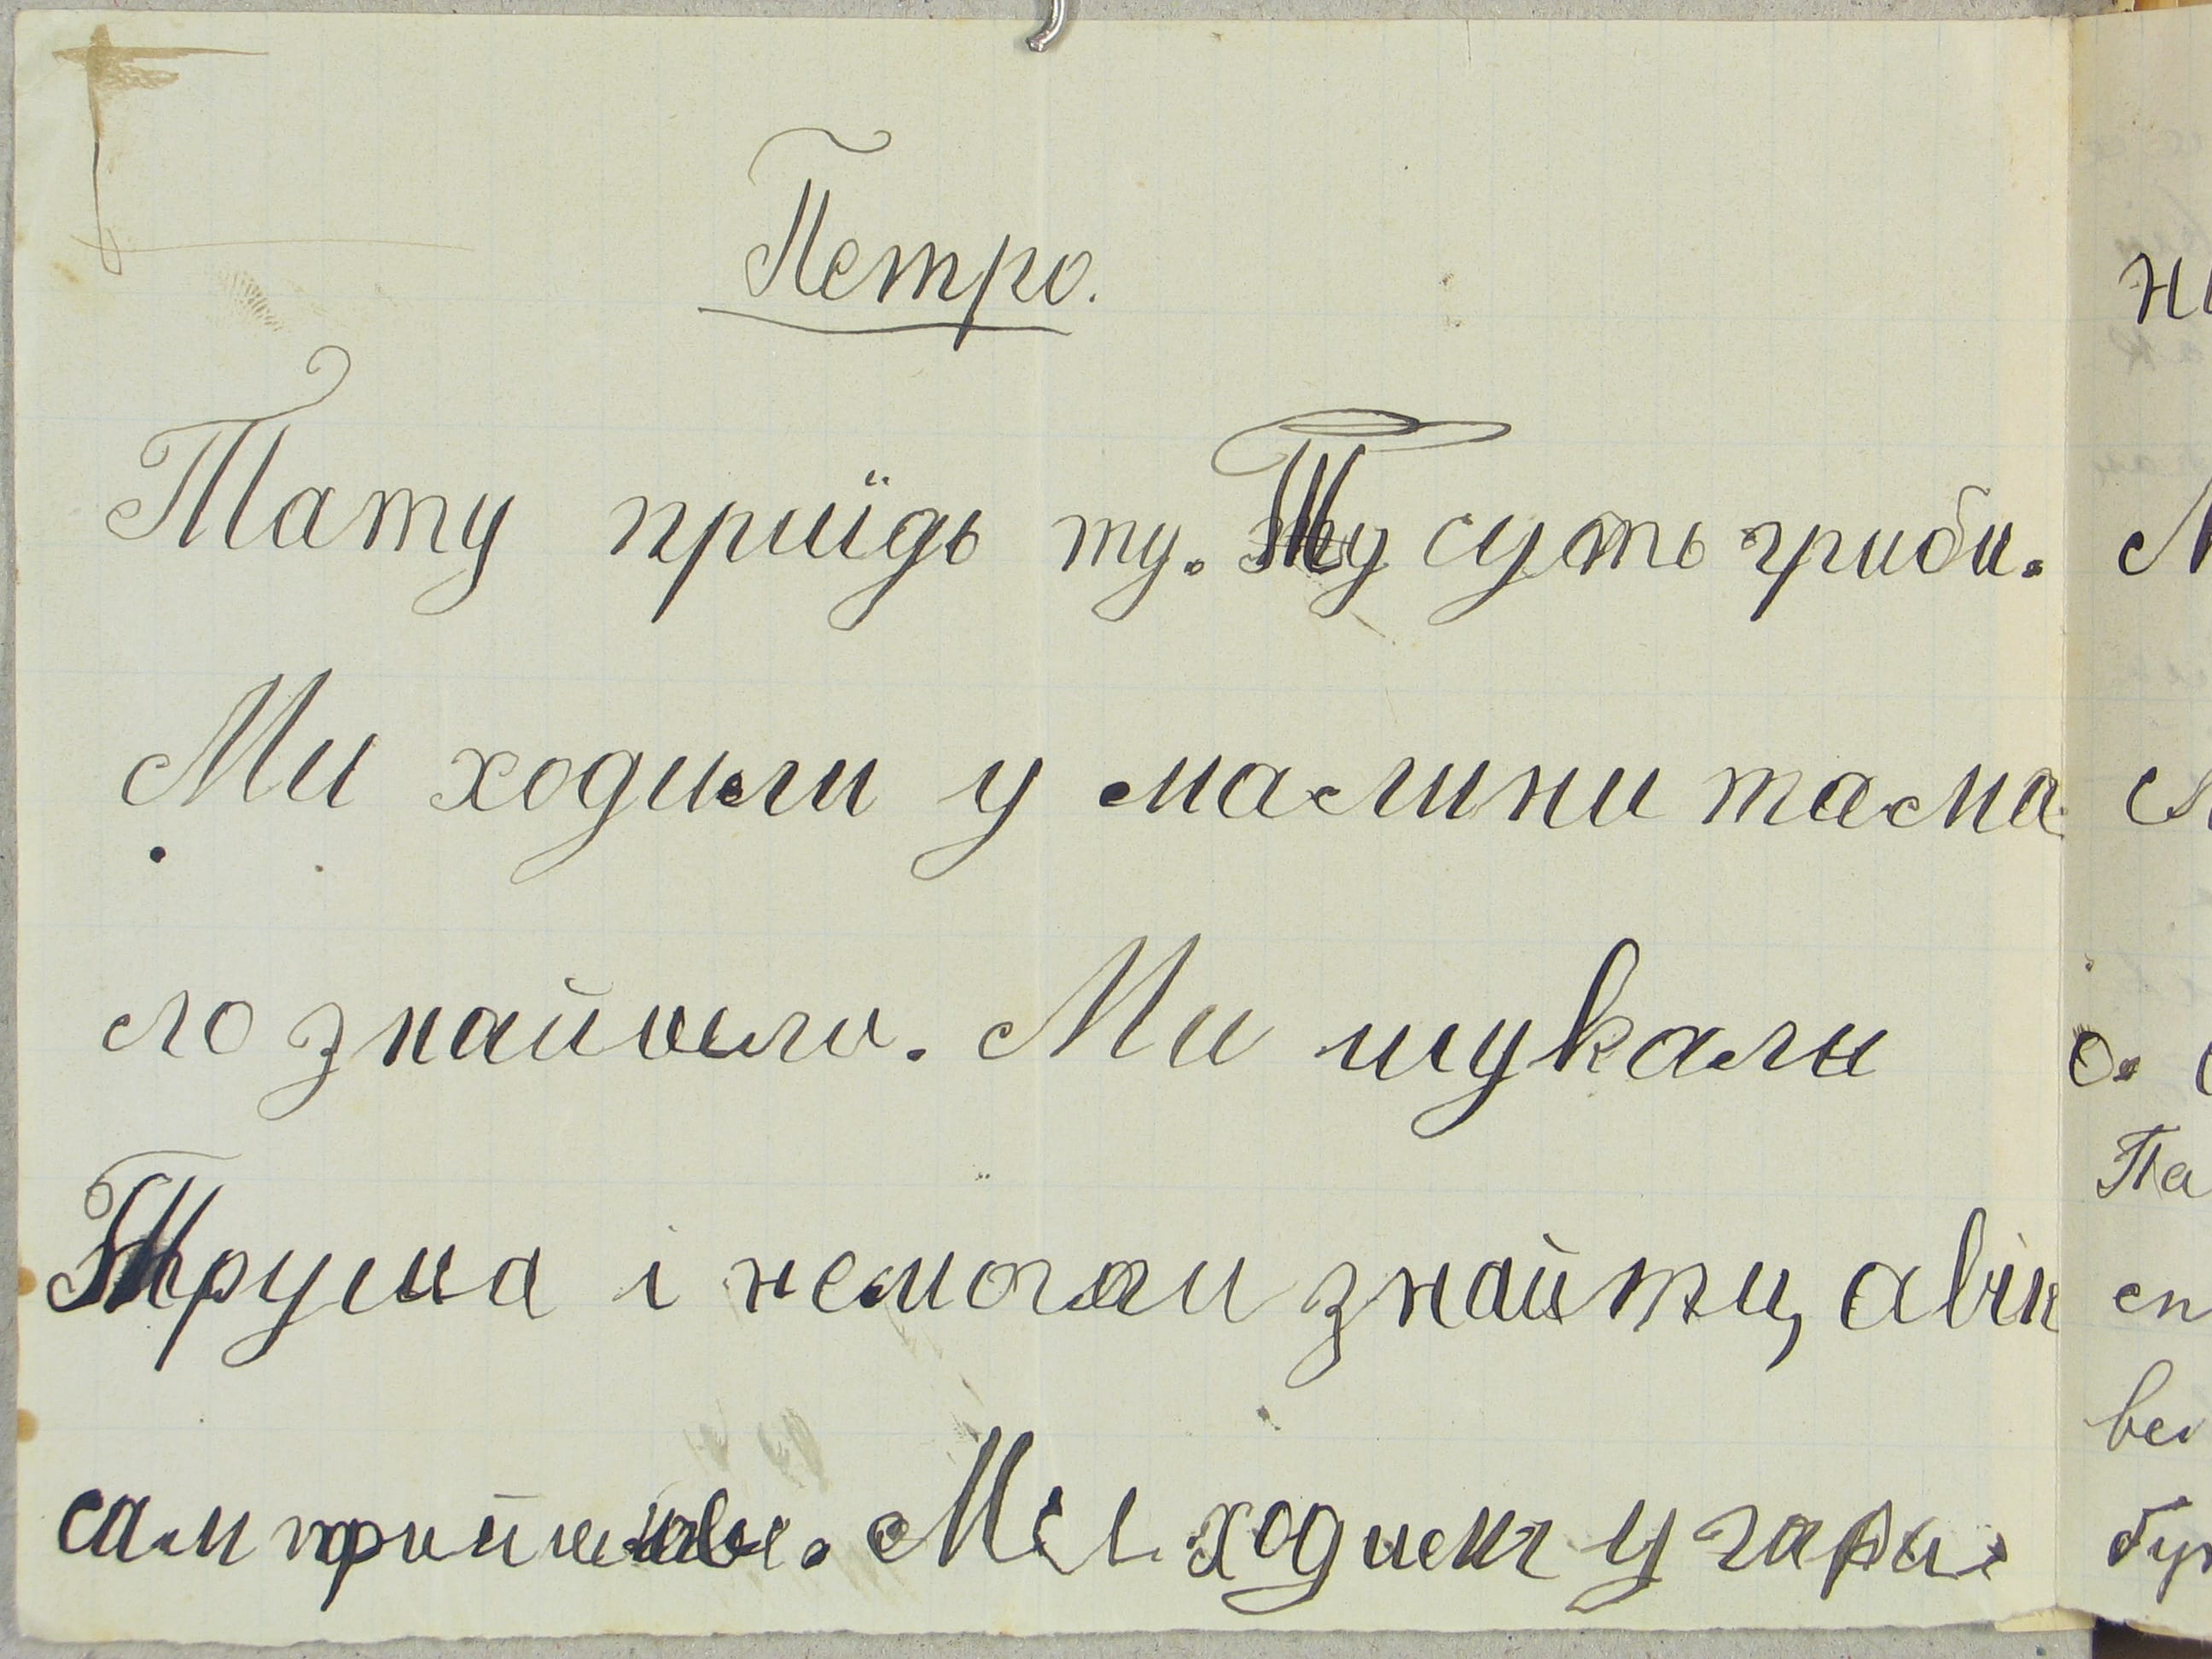 Петро.
Тату приїдь ту. Ту суть гриби.
Ми ходили у малини та ма
ло знайшли. Ми шукали
Труша і немогли знайти, а він
сам прийшов. Ми ходим у